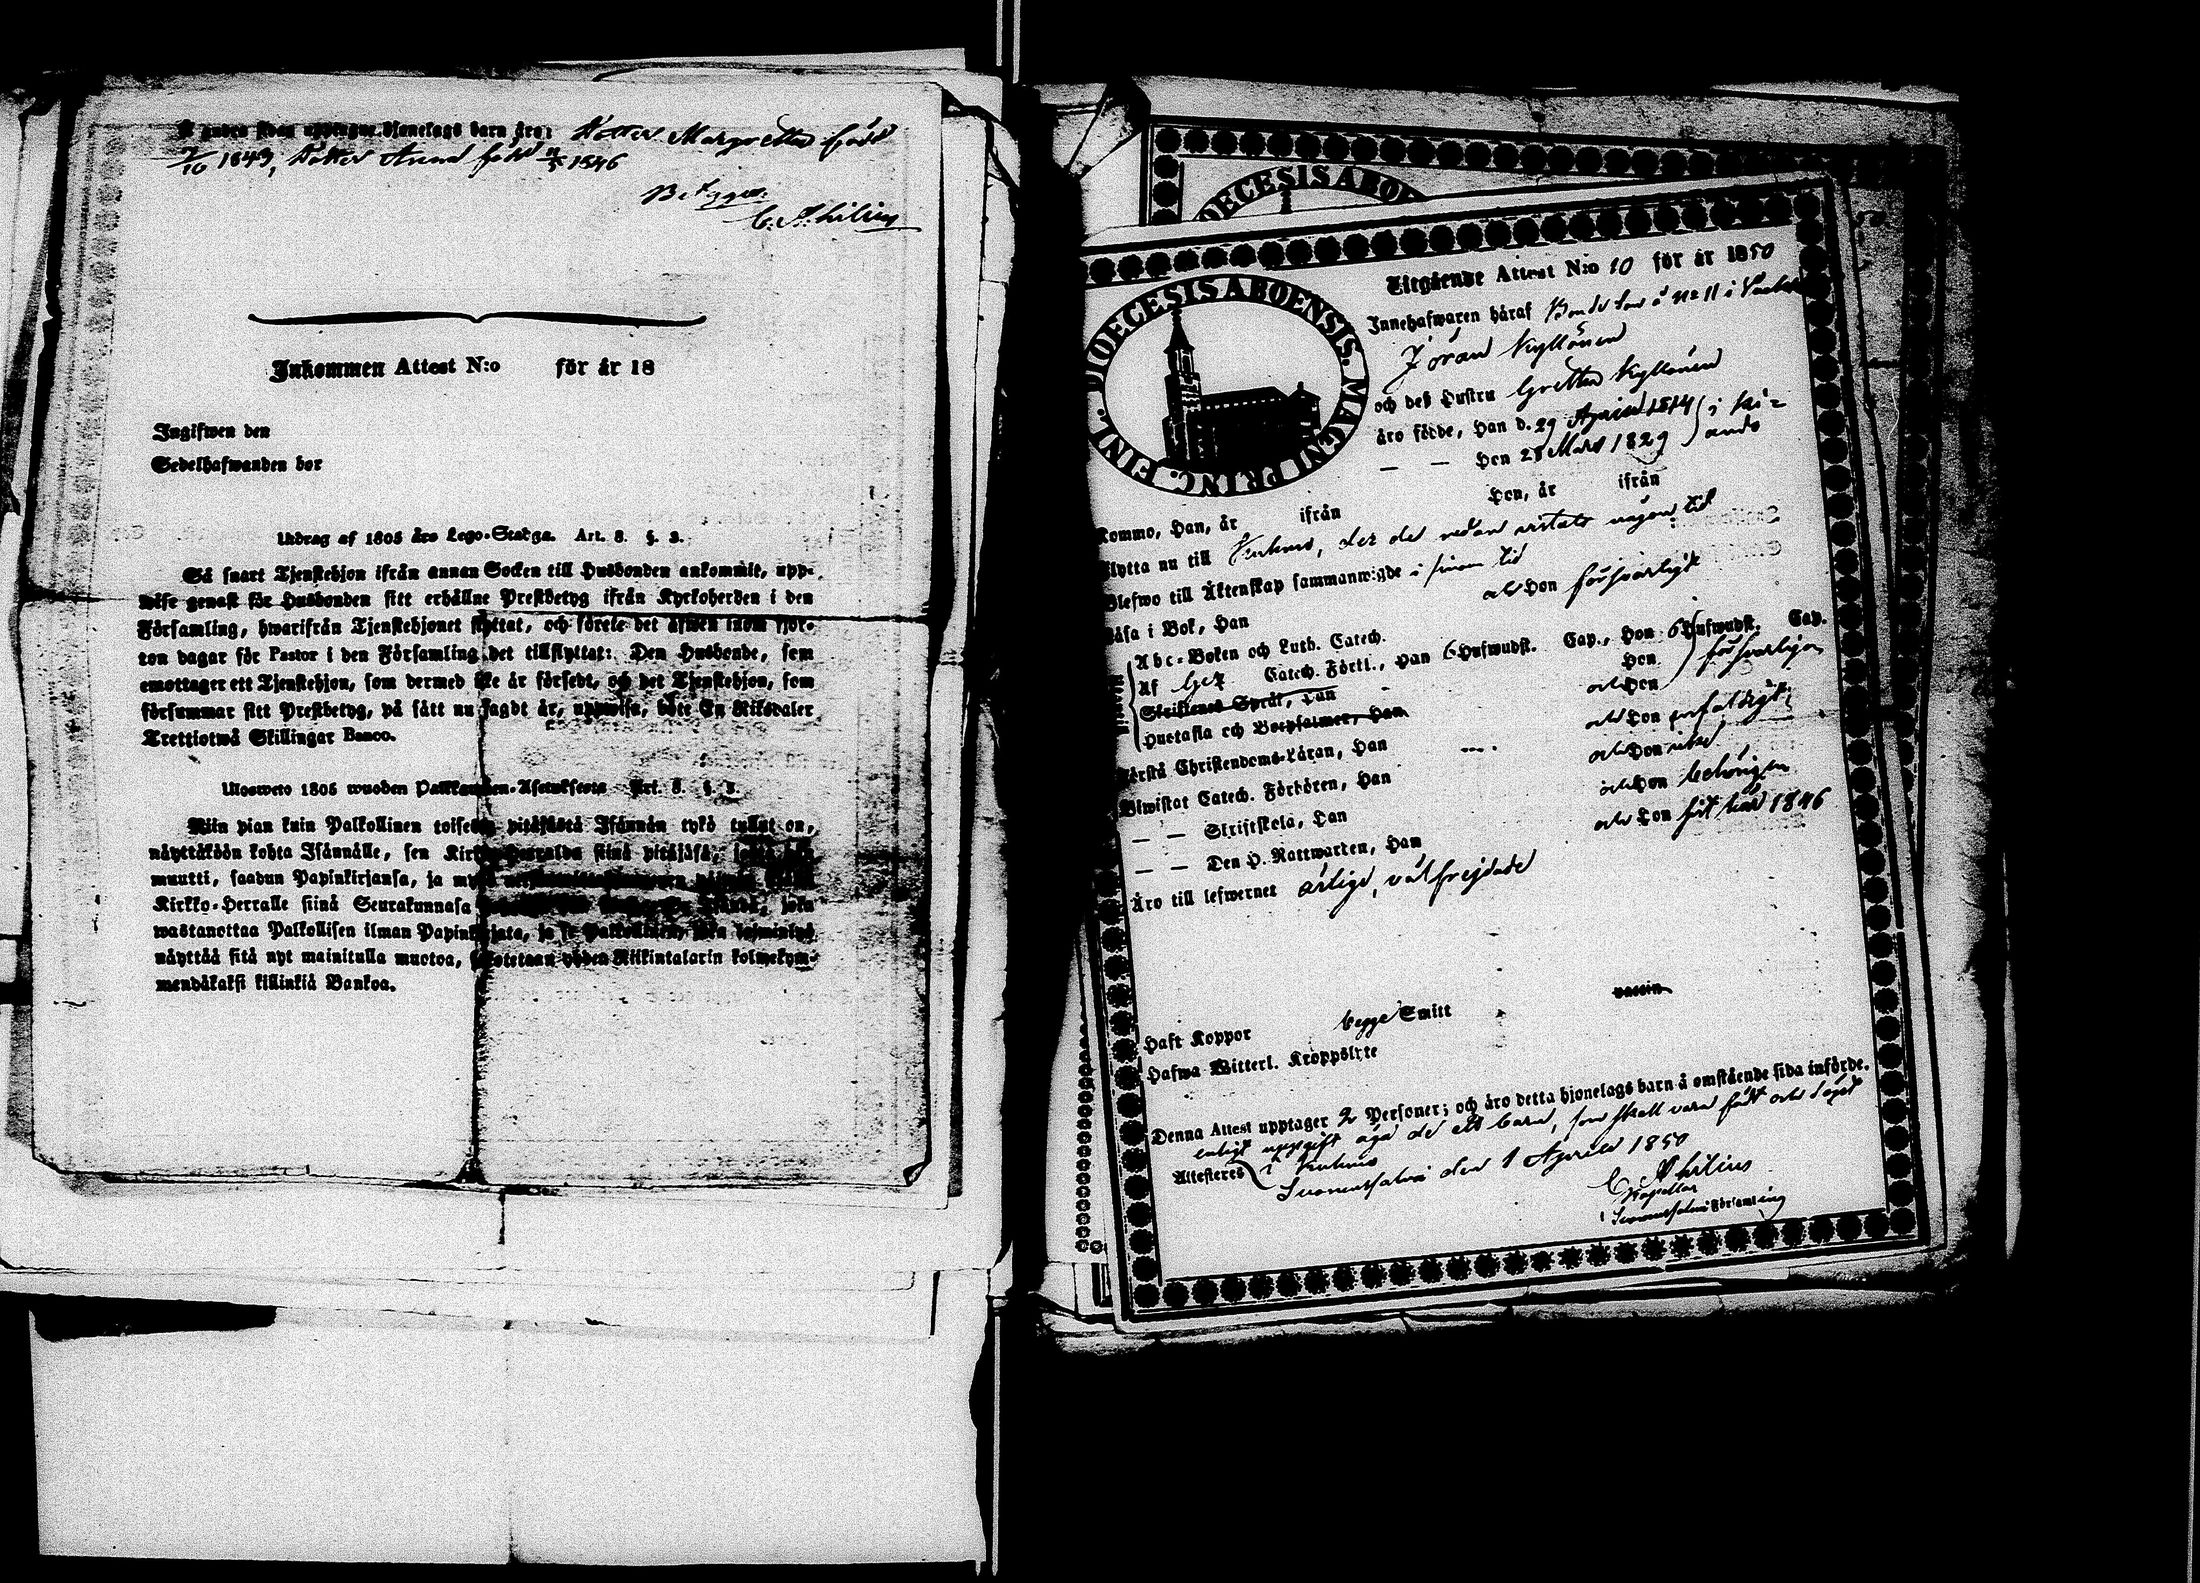 å andra sidan upptagne hjonelags barn äro: Dotter Margretha född
7/10 1843, Dotter Anna född 1846
Betygar
C. A.
Inkommen Attest N:o för år 18
Ingifwen den
Sedelhafwanden bor
Utdrag af 1805 års Lego-Stadga. Art. 8. §. 3.
Så snart Tjenstehjon ifrån annan Socken till Husbonden ankommit, upp-
wise genast för Husbonden sitt erhållne Prestbetyg ifrån Kyrkoherden i den
Församling, hwarifrån Tjenstehjonet flyttat, och förete det äfwen inom fjor-
ton dagar för Pastor i den Församling det tillflyttat: Den Husbonde, som
emottager ett Tjenstehjon, som dermed icke är försedt, och det Tjenstehjon, som
försummar sitt Prestbetyg, på sätt nu sagdt är, uppwisa, böte En Riksdaler
Trettiotwå Skillingar Banco.
Ulosweto 1805 wuoden Palkkawäen-Asetuksesta Art. 8. §. 3.
Niin pian kuin Palkollinen toisesta pitäjästä Isännän tykö tullut on,
näyttäköön kohta Isännälle, sen Kirkko-Herralda siinä pitäjäsä,
muutti, saadun Papinkirjansa, ja
Kirkko-Herralle siinä Seurakunnasa joka
wastanottaa Palkollisen ilman Papinkirjata, ja se Palkollinen, joka
näyttää sitä nyt mainitulla muotoa, sakotetaan yhden Riikintalarin kolmekym-
mendäkaksi killinkiä Bankoa.
DIOECESIS ABOENSIS. MAGNI PRINC. FINL.
DIOECESIS ABO
Utgående Attest N:o 10 för år 1850
Innehafwaren häraf Bonde Son å N:o 11 i
Jöran Kyllönen
och deß Hustru Gretha Kyllönen
äro födde, Han d. 29 April 1814 i
— — Hon 28 Mars 1829
Kommo, Han, år ifrån Hon, år ifrån
Flytta nu till Kuhmo, der de redan vistats någon tid
Blefwo till Äktenskap sammanwigde i sinom tid
Läsa i Bok, Han och Hon försvarligt
Abc-Boken och Luth. Catech.
Af Catech. Förkl., Han 6 Hufwudst. Cap., Hon 6 Hufwudst. Cap.
Skriftenes Språk, Han Hon försvarligen
Hustafla och Botpsalmer, Han och Hon
Förstå Christendoms-Läran, Han och Hon enfaldigt
Biwistat Catech. Förhören, Han och Hon
— — Skriftskola, Han och Hon behörigen
— — Den H. Nattwarden, Han och Hon 1846
Äro till lefwernet ärlige, välfrejdade
Haft Koppor begge Smitt vaccin
Hafwa Witterl. Kroppslyte
Denna Attest upptager 2 Personer; och äro detta hjonelags barn å omstående sida införde.
enligt uppgift äga de ett barn, som skall vara födt och döpt
Attesteres i Kuhmo
Suomussalmi den 1 April 1850
C. A.
Kapellan
i Suomussalmi Församling